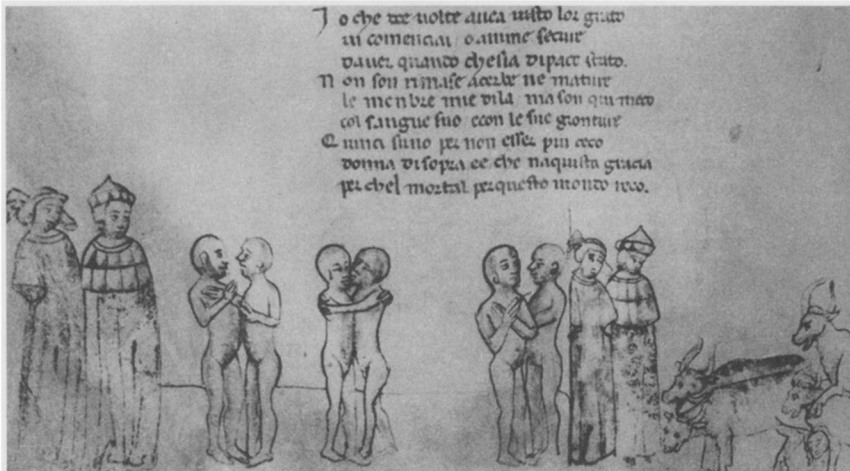 Jo che tre uolte auea uisto lor grato
ui comenciai o anime secure
dauer quando chesia dipace stato.
Non son rimase acerbe ne mature
le menbre mie dila ma son qui meco
col sangue suo econ le sue gionture
Quinci suuo per non esser piu ceco
donna disopra ee che naquista gracia
per chel mortal perquesto mondo reco.